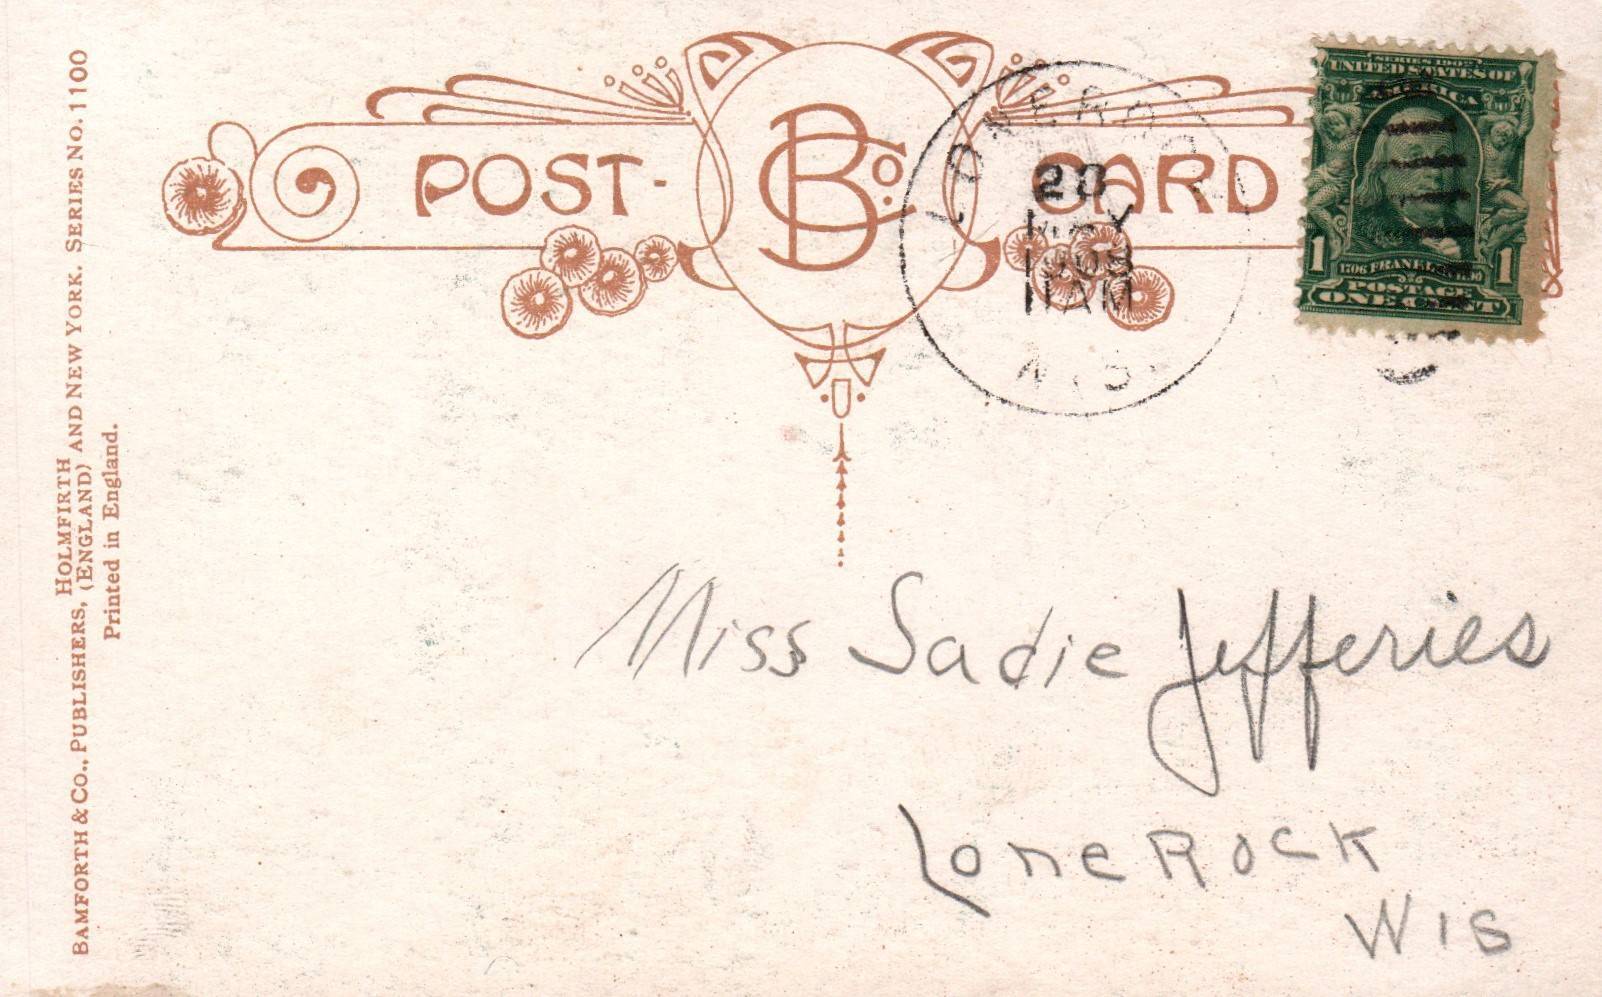 POST-
B Co.
CARD
LONE ROCK
20
MAY
1908
11 AM
WIS.
SERIES 1902
UNITED STATES OF
AMERICA
1 1706 FRANKLIN 1790 1
POSTAGE
ONE CENT
HOLMFIRTH
BAMFORTH & CO., PUBLISHERS, (ENGLAND) AND NEW YORK. SERIES NO. 1100
Printed in England.
Miss Sadie Jefferies
Lone Rock
Wis